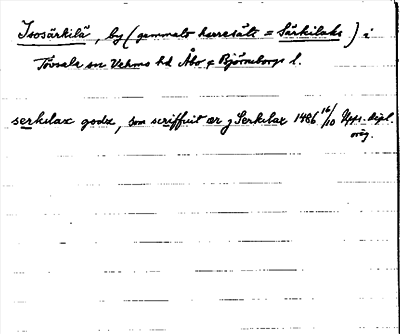 Isosärkilä, by (gammalt herresäte = Särkilaks) i
Tövsala sn Vehmo hd Åbo o Björneborgs l.
serkilax godz, som scriffuit ær j Serkilax 1486 16/10 Upps. dipl.
orig.